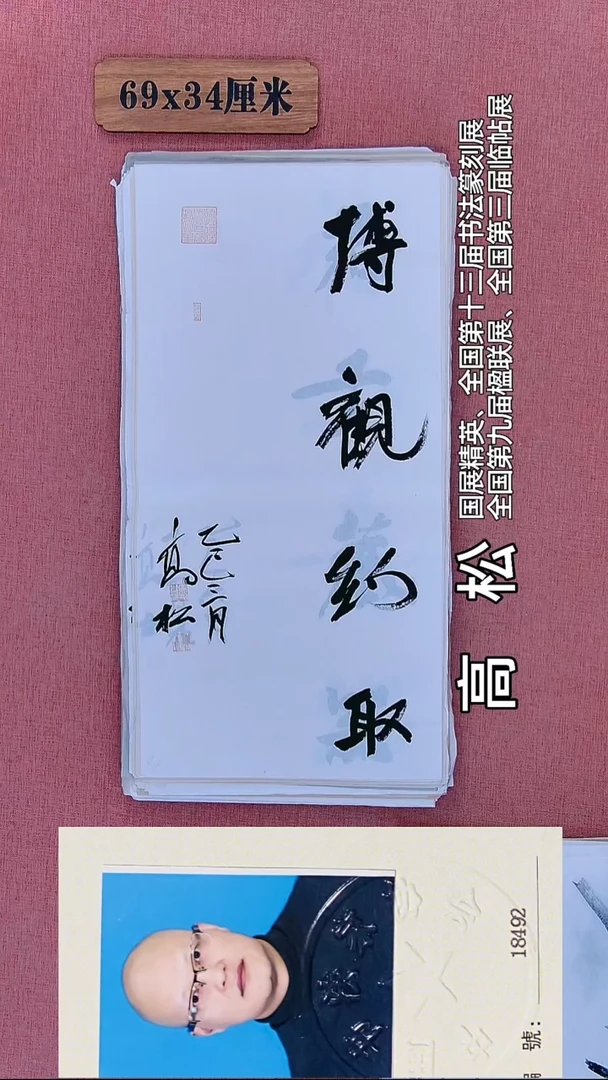 69x34厘米
搏觀约取
乙巳三月
高松
高 松
国展精英、全国第十三届书法篆刻展
全国第九届楹联展、全国第三届临帖展
編號：
18492